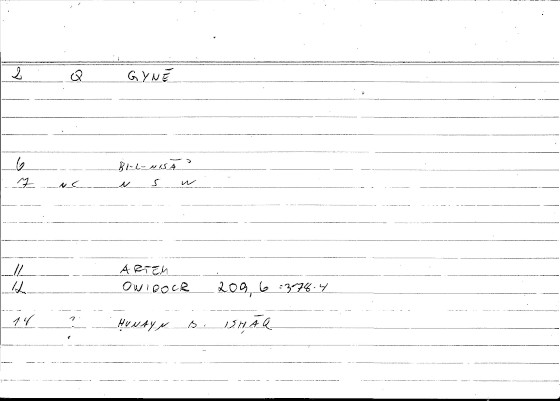 2 Q GYNĒ
6 BI-L-NISĀʾ
7 NC N S W
11 ARTEM
12 ONIROCR 209, 6 :378.4
14 ? ḤUNAYN B. ISḤĀQ